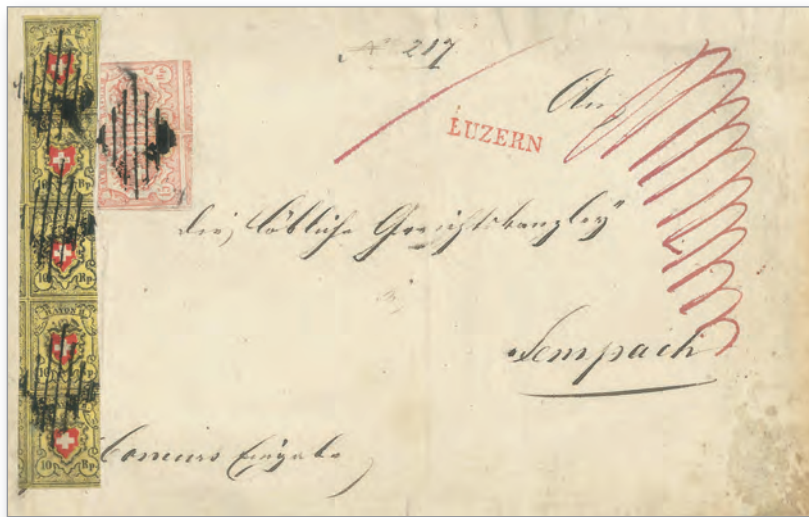 No 217
An
LUZERN
die löbliche Gerichtskanzley
Sempach
Concurs Eingabe
15 Rp.
RAYON II
10 Rp.
10 Rp.
10 Rp.